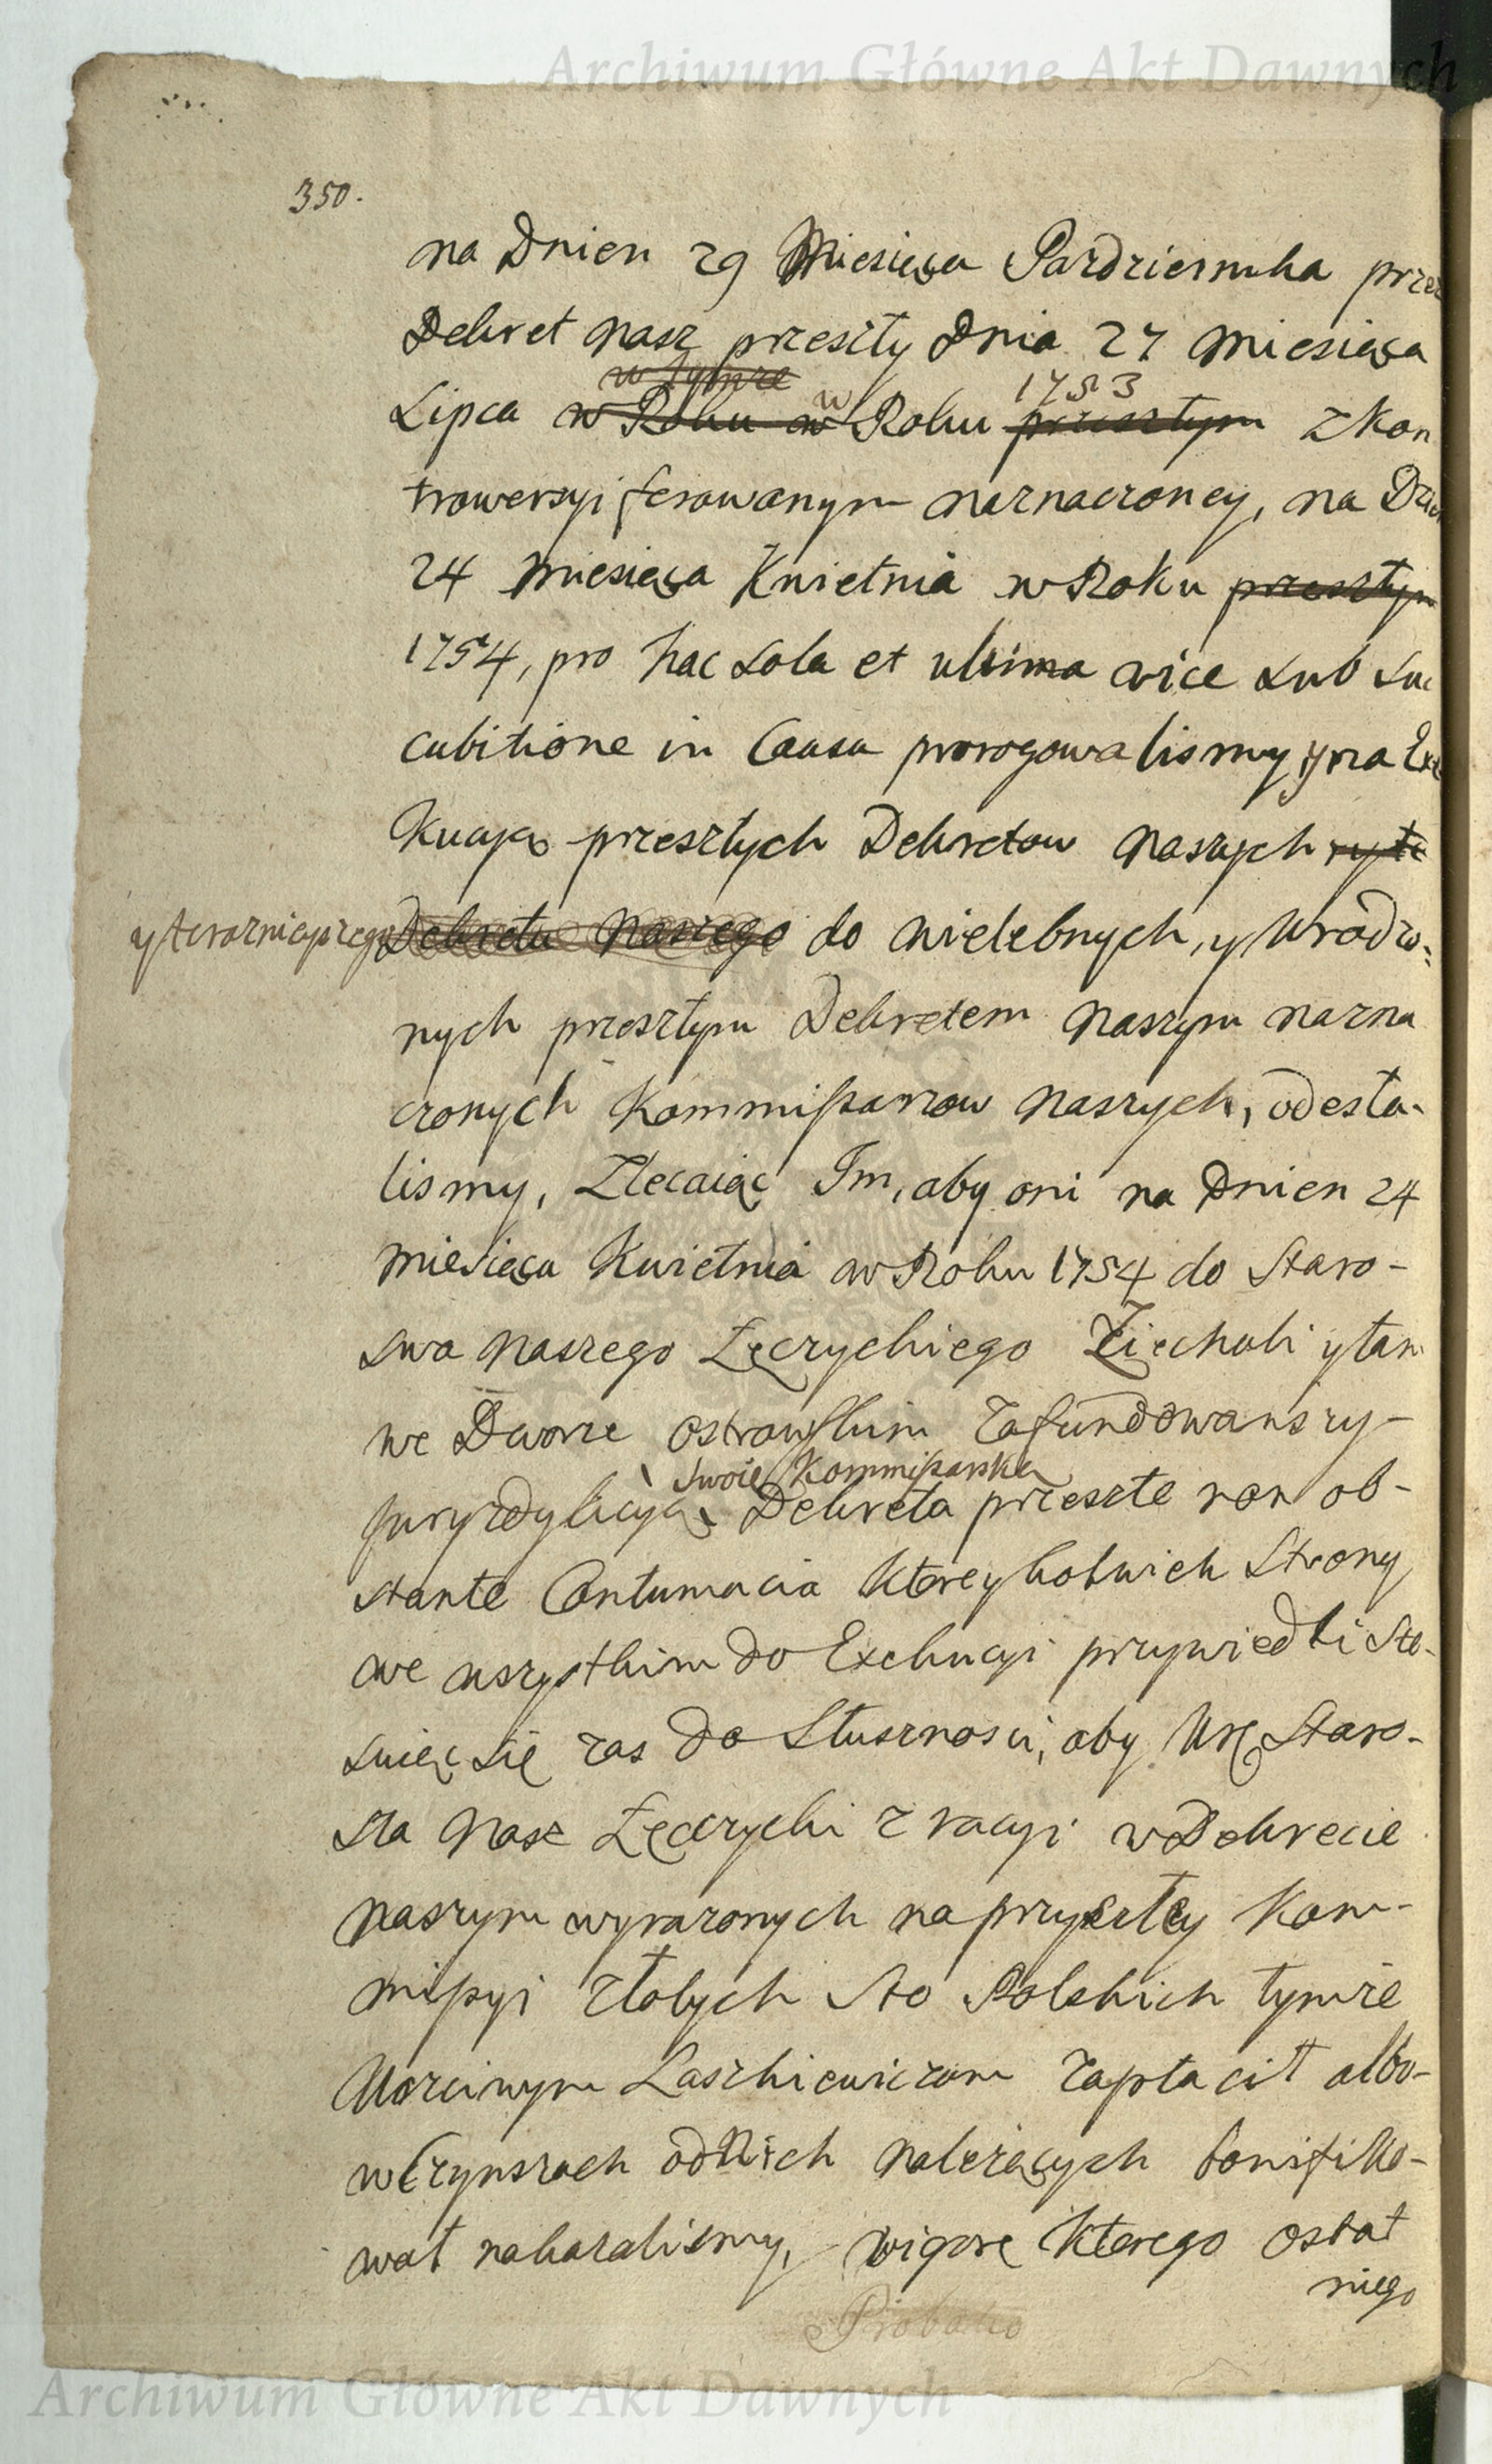 Archiwum Główne Akt Dawnych
350.
na Dnien 29 Miesięca Pazdziernika przez
Dekret nasz przeszły Dnia 27 Miesiąca
w tymze
Lipca w Roku w w Roku 1753 przeszłym z kon
trowersyi ferowanym naznaczoney, na Dzien
24 Miesiąca Kwietnia w Roku przeszłym
1754, pro hac sola et ultima vice sub suc
cubitione in Causa prorogowalismy, y na Exe
kucyą przeszłych Dekretow naszych
y teraznieyszego Dekretu Naszego do Wielebnych, y Urodzo=
nych przeszłym Dekretem Naszym nazna
czonych Kommissarzow Naszych, odesła-
lismy, Zlecaiąc Im, aby oni na Dnien 24
Miesięca Kwietnia w Roku 1754 do Staro-
swa Naszego Łęczyckiego Ziechali y tam
we Dworze Ostrowskim Zafundowanszy-
swoię Kommissarską
Juryzdykcyą Dekreta przeszłe non ob-
stante Contumacia ktoreykolwiek Strony
we wszystkim do Exekucyi przywiedli Sto-
suiąc się zas do Słusznosci, aby Ur. Staro-
sta Nasz Łęczycki z racyi w Dekrecie
naszym wyrazonych na przyszłey Kom-
missyi złotych Sto Polskich tymże
Laszkiewiczom zapłacił albo-
w Czynszach od Nich należących bonifiko-
wał nakazalismy, vigore ktorego ostat
niego
Probatio
Archiwum Główne Akt Dawnych